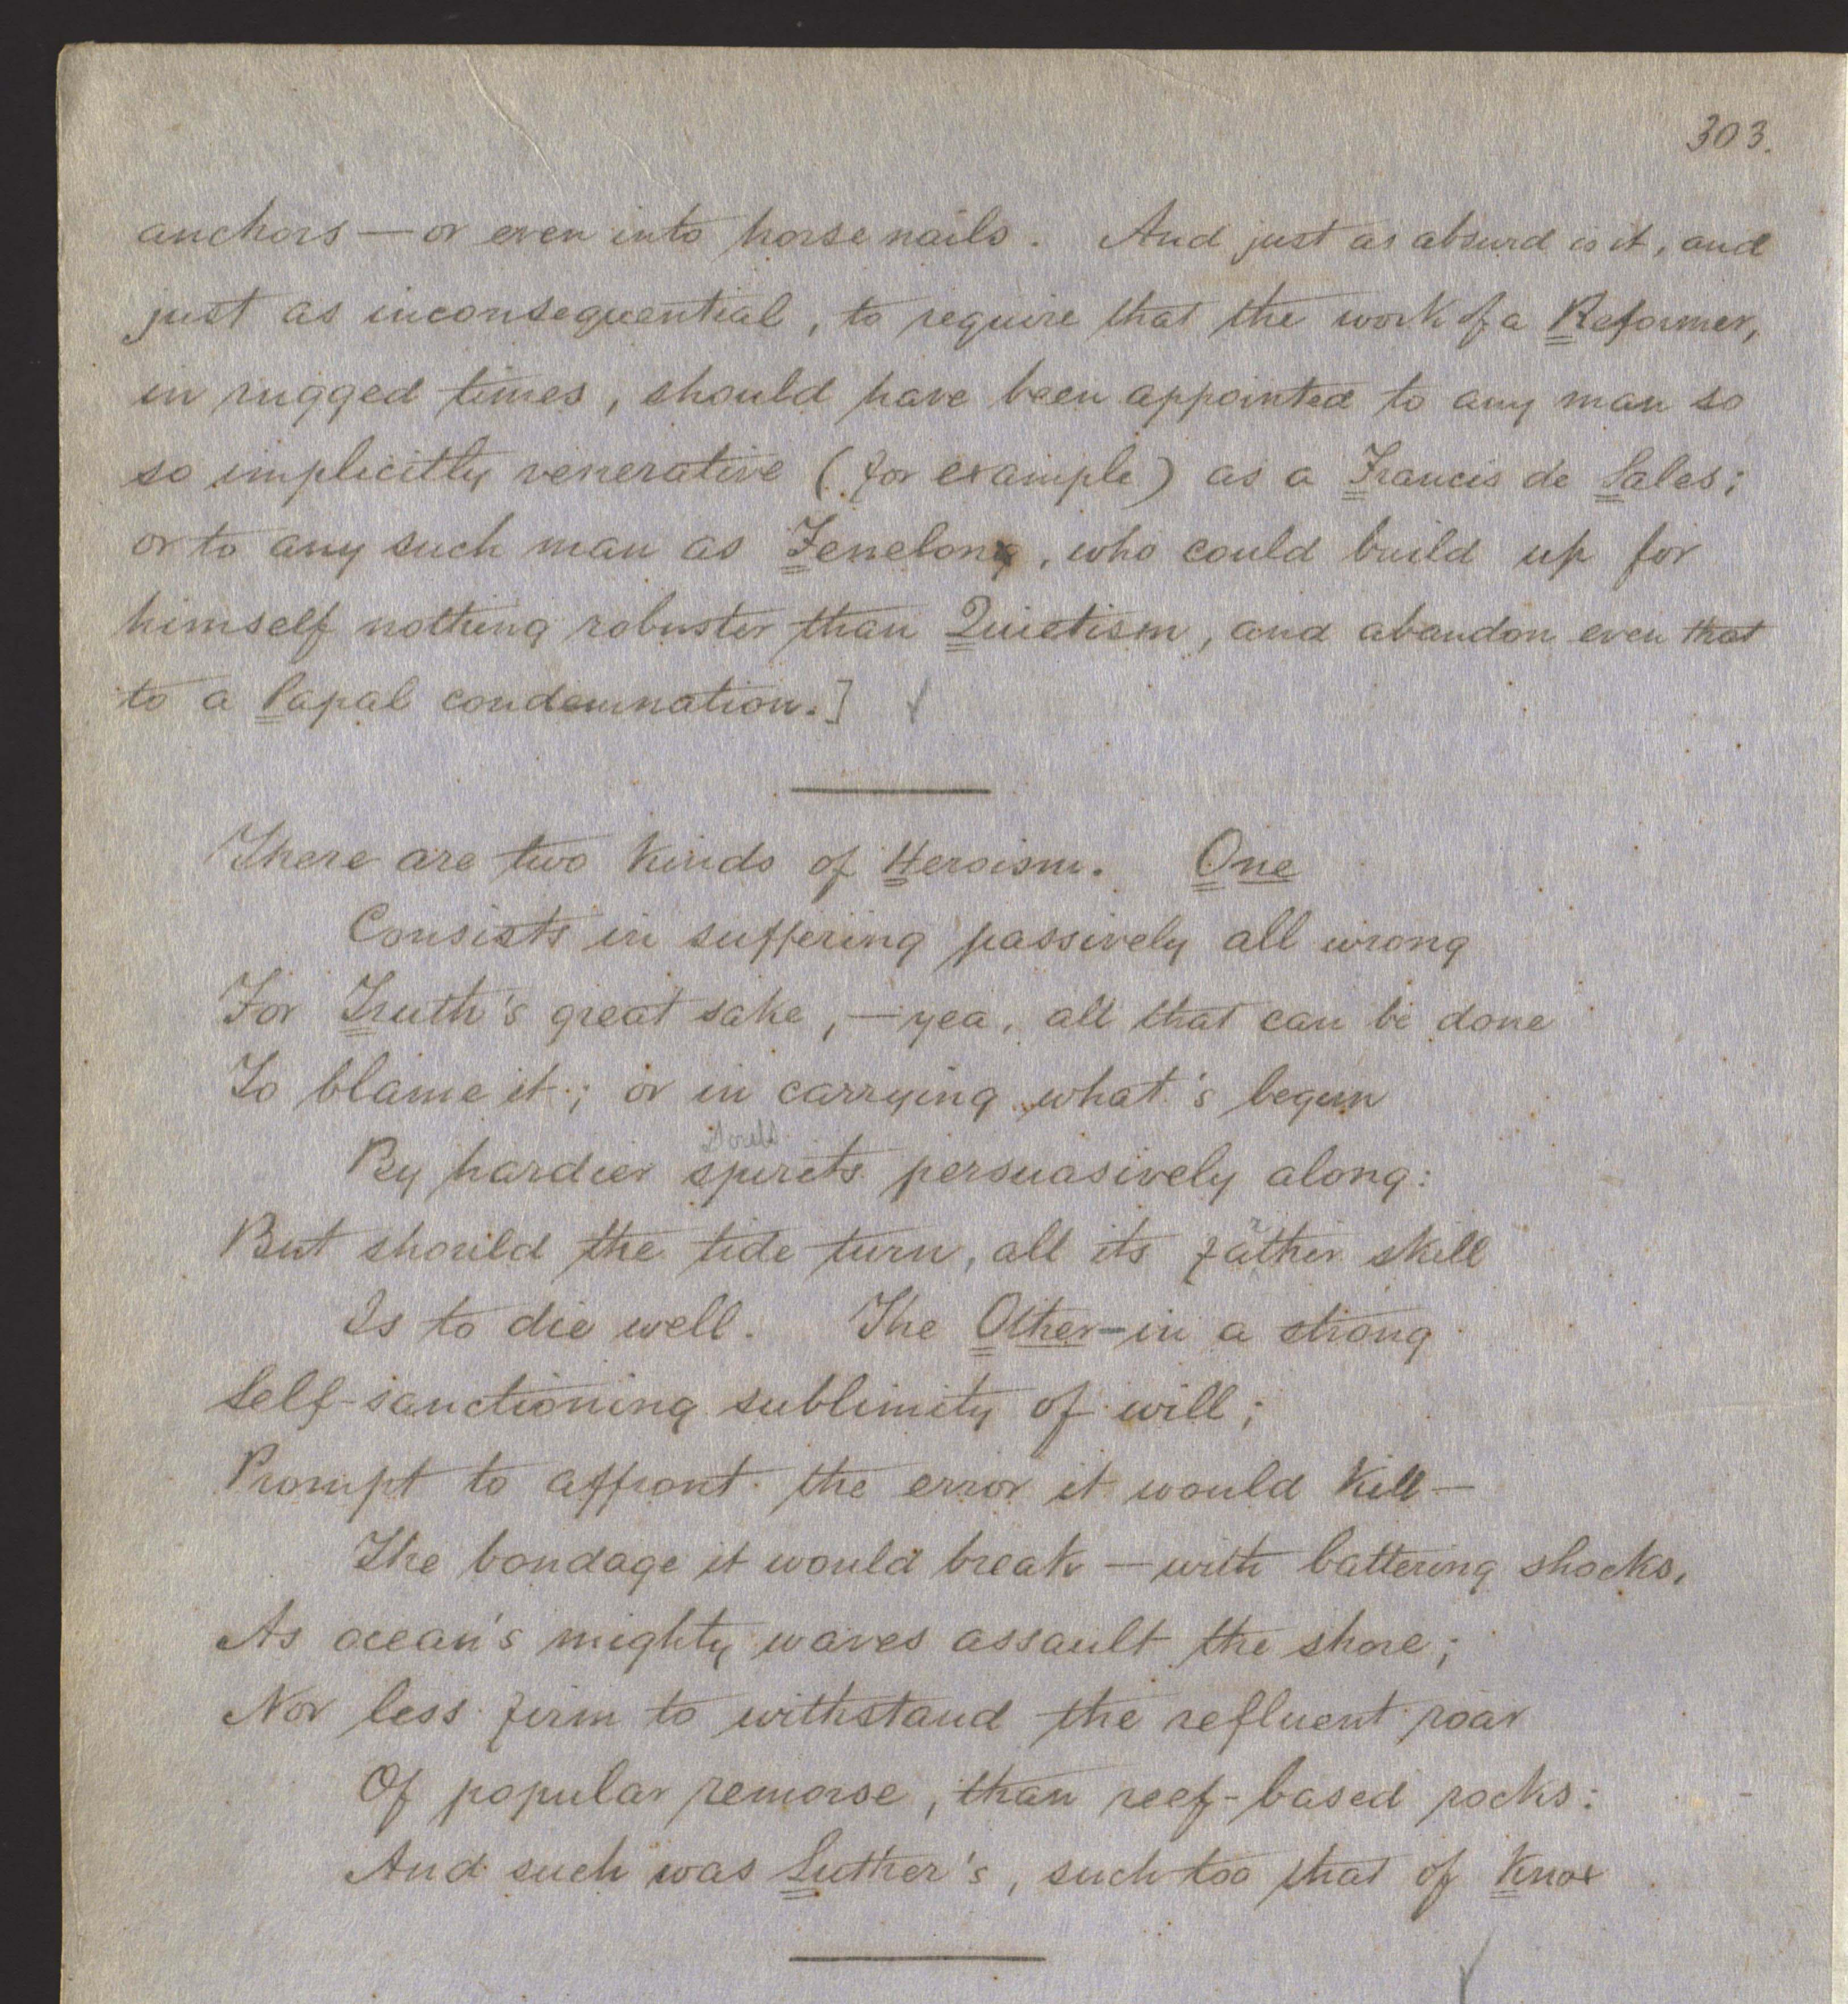 303.
anchors — or even into horse nails. And just as absurd is it, and
just as inconsequential, to require that the work of a Reformer,
in rugged times, should have been appointed to any man so
so implicitly venerative (for example) as a Francis de Sales;
or to any such man as Fenelon, who could build up for
himself nothing robuster than Quietism, and abandon even that
to a Papal condemnation.]
There are two kinds of Heroism. One
Consists in suffering passively all wrong
For Truth's great sake, — yea, all that can be done
To blame it; or in carrying what's begun
By hardier spirits persuasively along:
But should the tide turn, all its farther skill
Is to die well. The Other — in a strong
Self-sanctioning sublimity of will;
Prompt to affront the error it would kill —
The bondage it would break — with battering shocks,
As ocean's mighty waves assault the shore;
Nor less firm to withstand the refluent roar
Of popular remorse, than reef-based rocks:
And such was Luther's, such too that of Knox